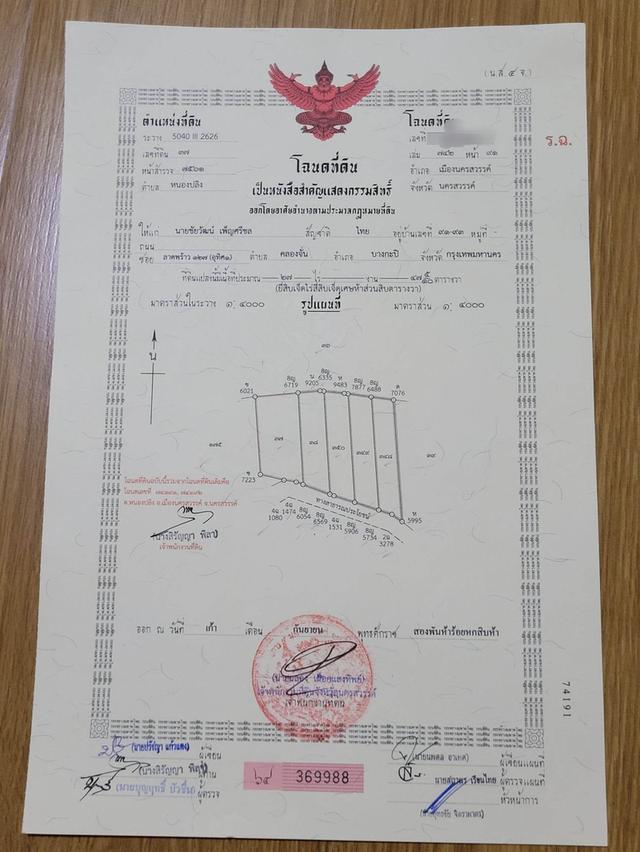 (น.ส.๔ จ.)
ตำแหน่งที่ดิน
ระวาง 5040 III 2626
เลขที่ดิน ๓๗
หน้าสำรวจ ๗๕๖๑
ตำบล หนองปลิง
โฉนดที่ดิน
เลขที่
เล่ม ๗๔๒ หน้า ๙๑
อำเภอ เมืองนครสวรรค์
จังหวัด นครสวรรค์
ร.ฉ.
โฉนดที่ดิน
เป็นหนังสือสำคัญแสดงกรรมสิทธิ์
ออกโดยอาศัยอำนาจตามประมวลกฎหมายที่ดิน
ให้แก่ นายชัยวัฒน์ เพ็ญศรีชล สัญชาติ ไทย อยู่บ้านเลขที่ ๙๑-๙๓ หมู่ที่ -
ถนน
ซอย ลาดพร้าว ๑๒๗ (อุทิศ๑) ตำบล คลองจั่น อำเภอ บางกะปิ จังหวัด กรุงเทพมหานคร
ที่ดินแปลงนี้มีเนื้อที่ประมาณ ๒๗ ไร่ - งาน ๔๗ ๕/๑๐ ตารางวา
(ยี่สิบเจ็ดไร่สี่สิบเจ็ดเศษห้าส่วนสิบตารางวา)
มาตราส่วนในระวาง ๑:๔๐๐๐ รูปแผนที่ มาตราส่วน ๑:๔๐๐๐
น
๓๐
6021
6719
9205
6335
9483
7877
6488
7076
๑๗๕
๓๗
๓๘
๓๕๐
๓๔๙
๓๔๘
๓๙
7223
ทางสาธารณประโยชน์
1080
1474
6054
8569
1531
5906
5734
3278
5995
โฉนดที่ดินฉบับนี้รวมจากโฉนดที่ดินเดิมคือ
โฉนดเลขที่
ต.หนองปลิง อ.เมืองนครสวรรค์ จ.นครสวรรค์
เจ้าพนักงานที่ดิน
ออก ณ วันที่ เก้า เดือน กันยายน พุทธศักราช สองพันห้าร้อยหกสิบห้า
เจ้าพนักงานที่ดินจังหวัดนครสวรรค์
เจ้าพนักงานที่ดิน
74191
ผู้เขียน
ผู้ทาน
ผู้ตรวจ
๖๔ 369988
ผู้เขียนแผนที่
ผู้ตรวจแผนที่
หัวหน้าการ